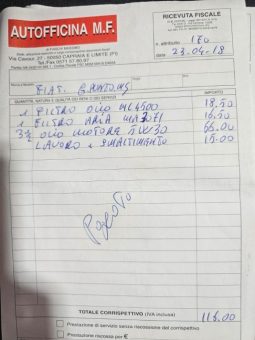 AUTOFFICINA M.F.
Via Cavour, 27 - 50050 CAPRAIA E LIMITE (FI)
Tel./Fax 0571 57.80.97
RICEVUTA FISCALE
n. attribuito 170
data 23-04-18
FIAT
QUANTITÀ, NATURA E QUALITÀ DEI BENI E DEI SERVIZI IMPORTO
1 FILTRO OLIO 18,50
1 FILTRO ARIA 16,50
OLIO MOTORE 5W30 66.00
LAVORO E SMALTIMENTO 15.00
TOTALE CORRISPETTIVO (IVA inclusa) 116.00
Prestazione di servizio senza riscossione del corrispettivo
Prestazione riscossa per €